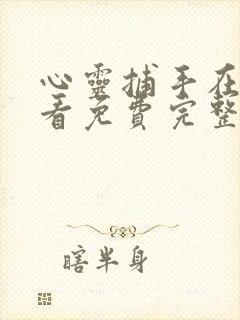 心靈捕手在
看免費完整
瞎半身